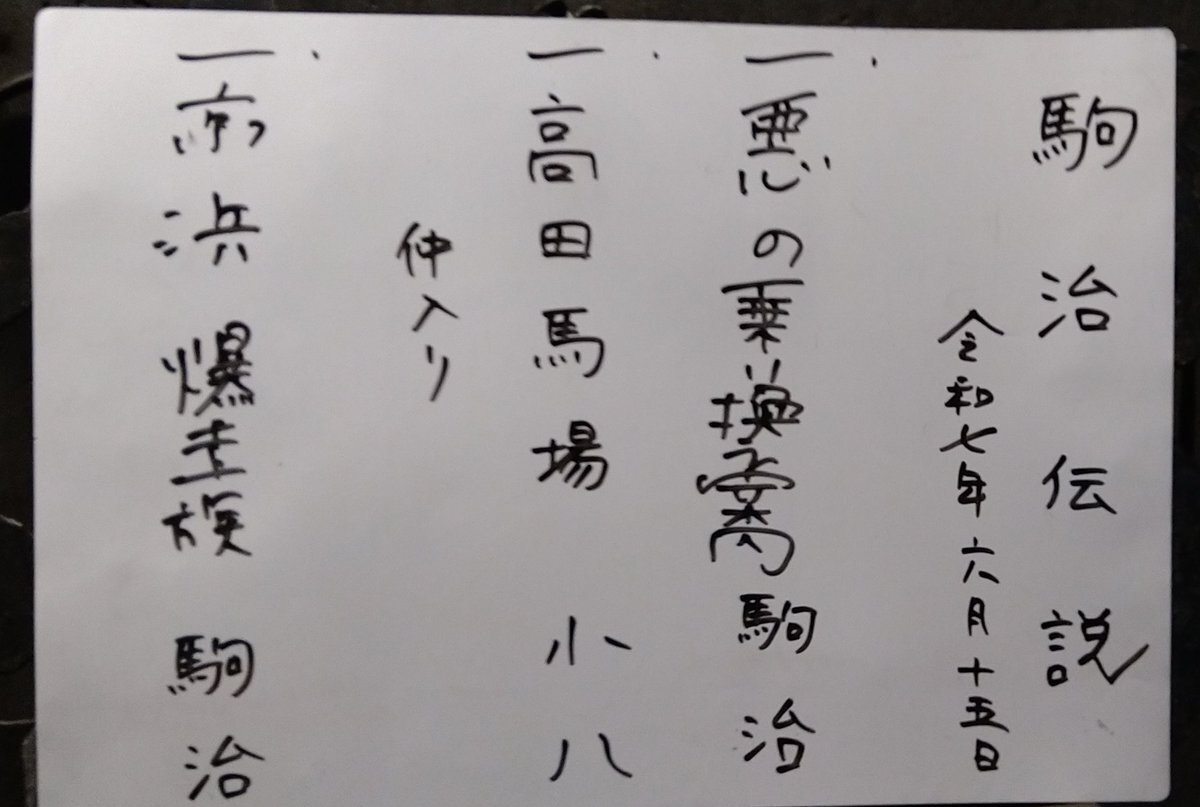 駒治伝説
令和七年六月十五日
一、悪の乗り換え案内 駒治
一、高田馬場 小八
仲入り
一、京浜爆走族 駒治